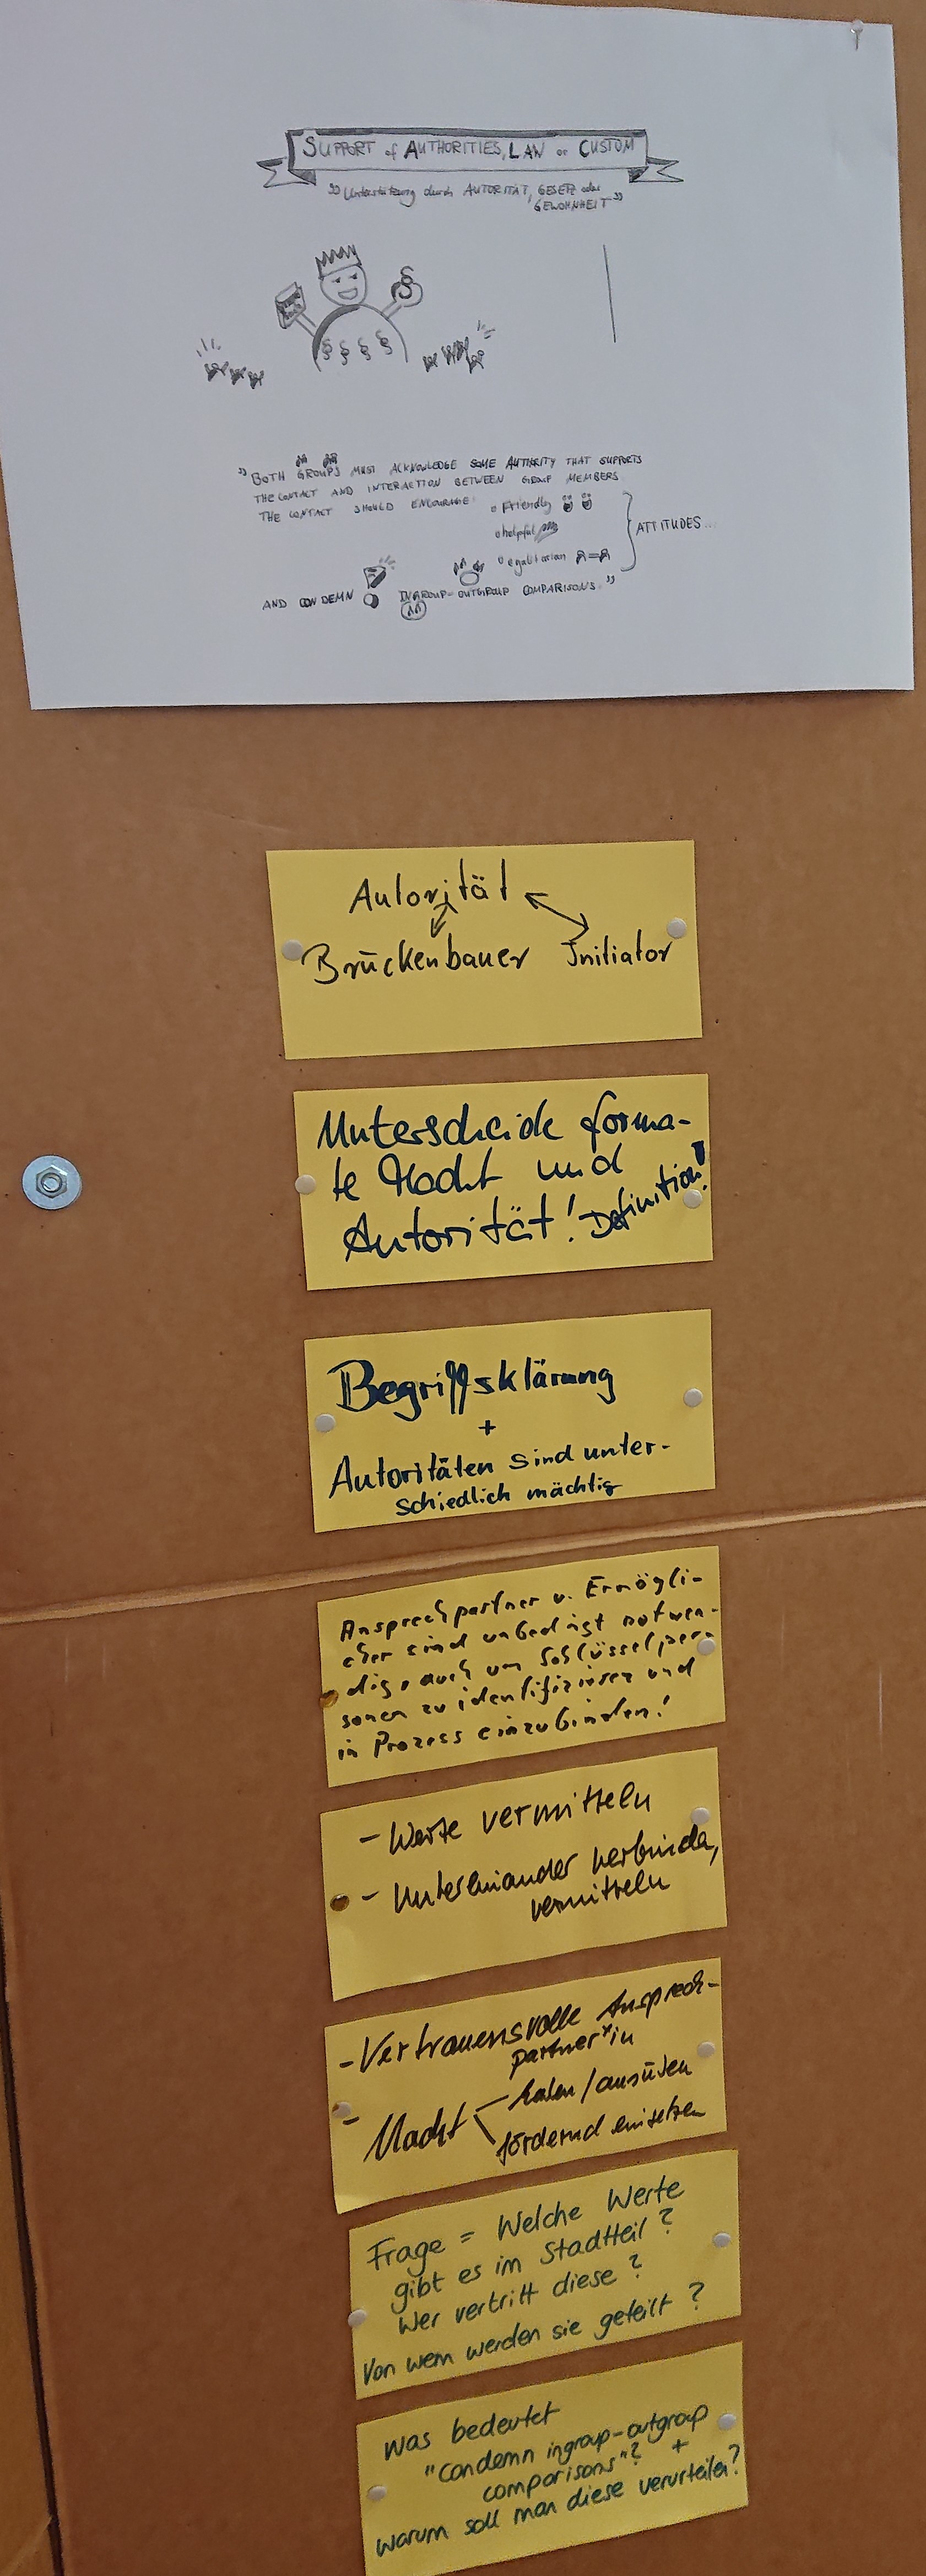 SUPPORT of AUTHORITIES, LAW or CUSTOM
"Unterstützung durch AUTORITÄT, GESETZ oder
GEWOHNHEIT"
§
§ § § §
"BOTH GROUPS MUST ACKNOWLEDGE SOME AUTHORITY THAT SUPPORTS
THE CONTACT AND INTERACTION BETWEEN GROUP MEMBERS
THE CONTACT SHOULD ENCOURAGE:
Friendly
helpful
egalitarian
ATTITUDES...
AND CONDEMN INGROUP-OUTGROUP COMPARISONS."
Autorität
Brückenbauer Initiator
Unterscheide forma-
le Macht und
Autorität! Definition!
Begriffsklärung
+
Autoritäten sind unter-
schiedlich mächtig
Ansprechpartner u. Ermögli-
cher sind unbedingt notwen-
dig, auch um Schlüsselper-
sonen zu identifizieren und
in Prozess einzubinden!
- Werte vermitteln
- Untereinander verbinden,
vermitteln
- Vertrauensvolle Ansprech-
partner*in
- Macht haben / ausüben
fördernd einsetzen
Frage = Welche Werte
gibt es im Stadtteil?
Wer vertritt diese?
Von wem werden sie geteilt?
Was bedeutet
"condemn ingroup-outgroup
comparisons"? +
warum soll man diese verurteilen?